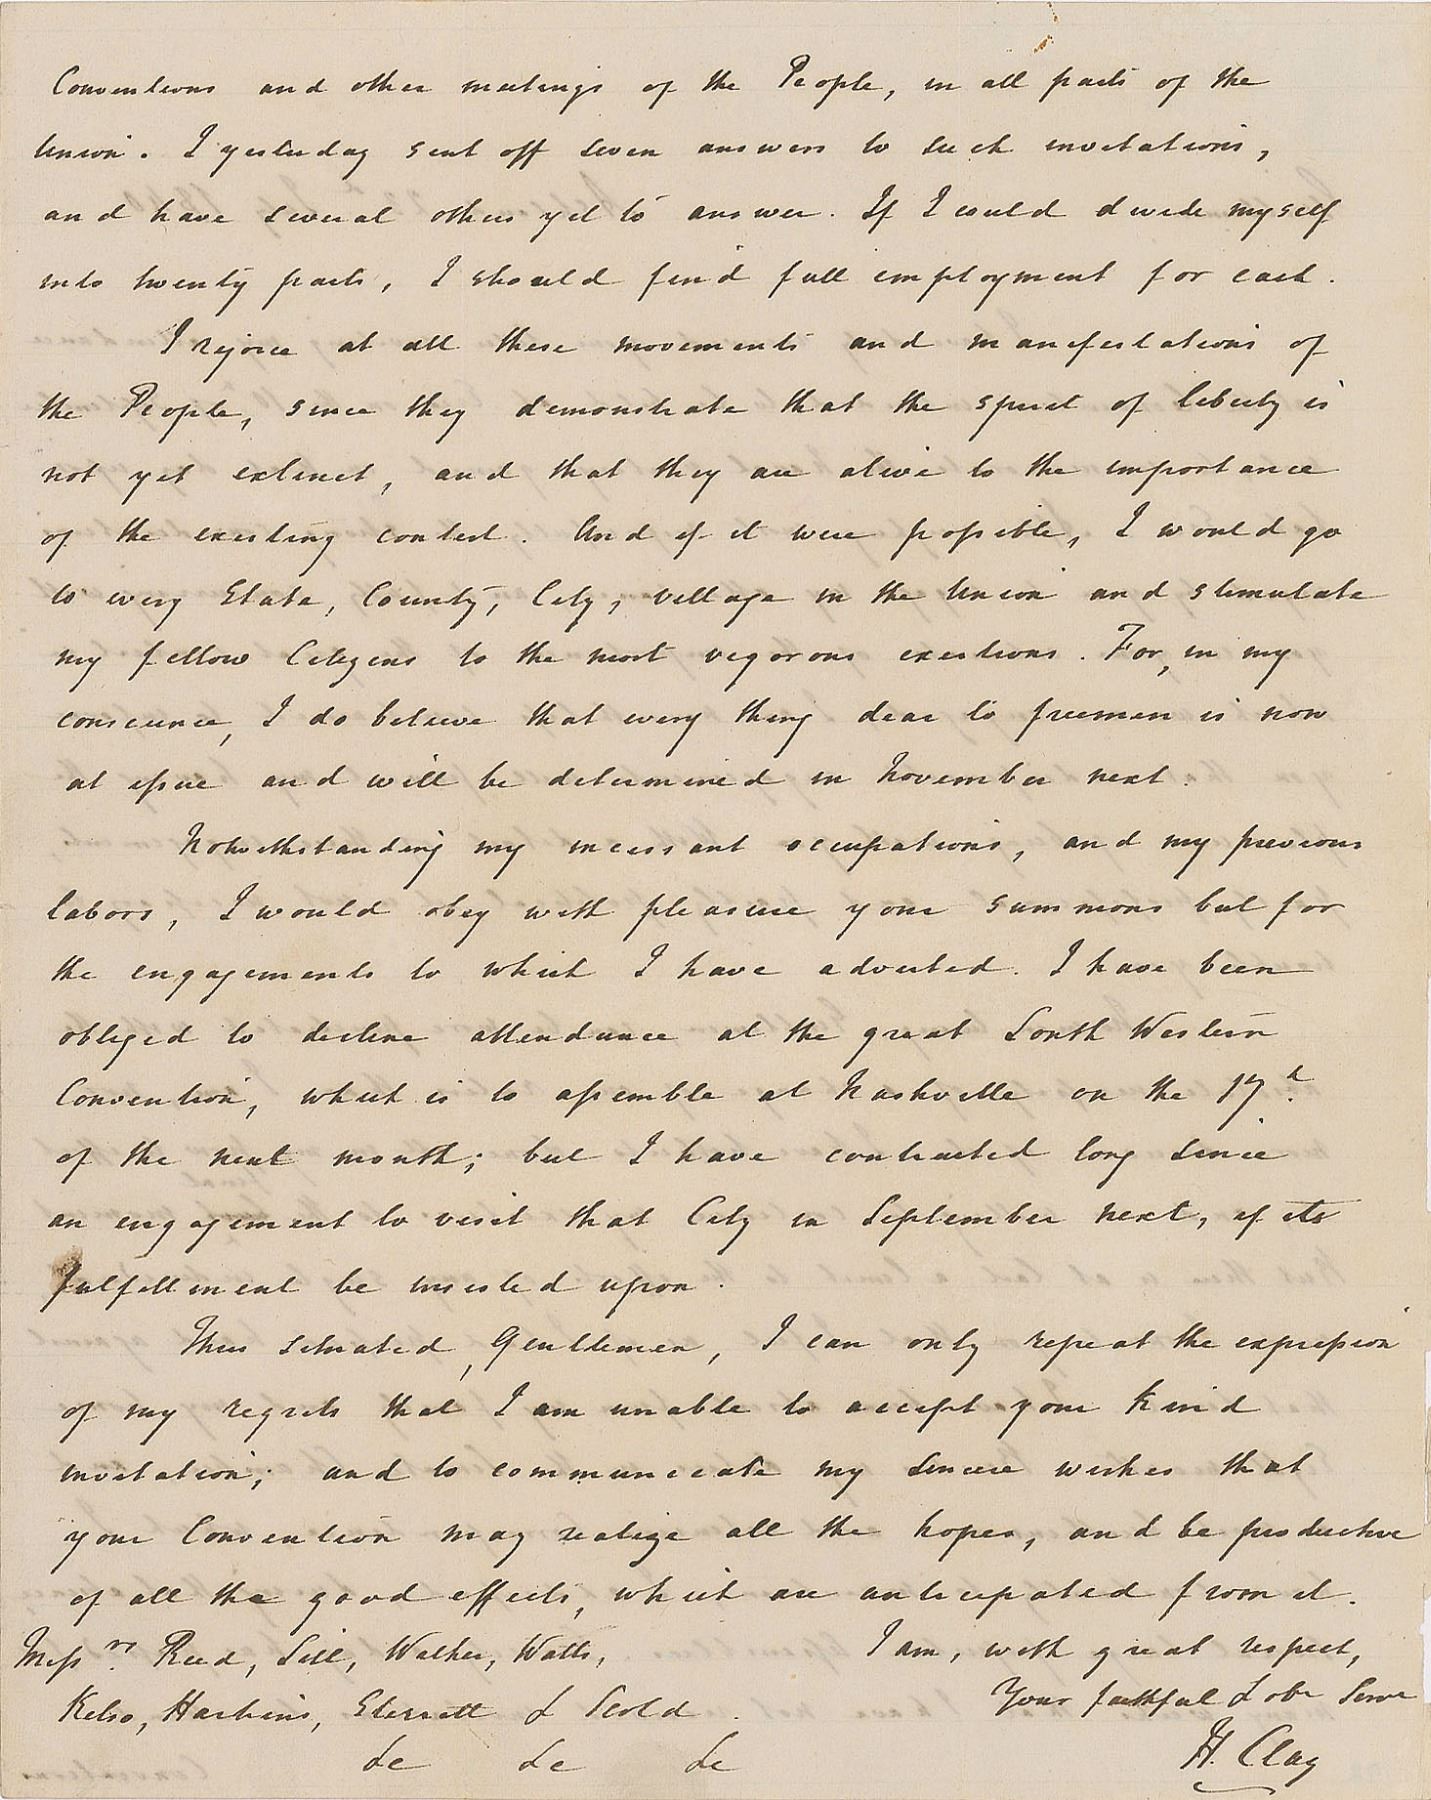 Conventions and other meetings of the People, in all parts of the
Union. I yesterday sent off seven answers to such invitations,
and have several others yet to answer. If I could divide myself
into twenty parts, I should find full employment for each.
I rejoice at all these movements and manifestations of
the People, since they demonstrate that the spirit of liberty is
not yet extinct, and that they are alive to the importance
of the existing contest. And if it were possible, I would go
to every State, County, City, village in the Union and stimulate
my fellow Citizens to the most vigorous exertions. For, in my
conscience, I do believe that every thing dear to freemen is now
at issue and will be determined in November next.
Notwithstanding my incessant occupations, and my previous
labors, I would obey with pleasure your summons but for
the engagements to which I have adverted. I have been
obliged to decline attendance at the great South Western
Convention, which is to assemble at Nashville on the 17h.
of the next month; but I have contracted long since
an engagement to visit that City in September next, if its
fulfillment be insisted upon.
Thus situated, Gentlemen, I can only repeat the expression
of my regrets that I am unable to accept your kind
invitation; and to communicate my sincere wishes that
your Convention may realize all the hopes, and be productive
of all the good effects, which are anticipated from it.
Messrs. Reed, Sill, Walker, Watts,
Kelso, Haskins, Sterrett & Scold.
&c &c &c
I am, with great respect,
Your faithful & obt Serve
H. Clay